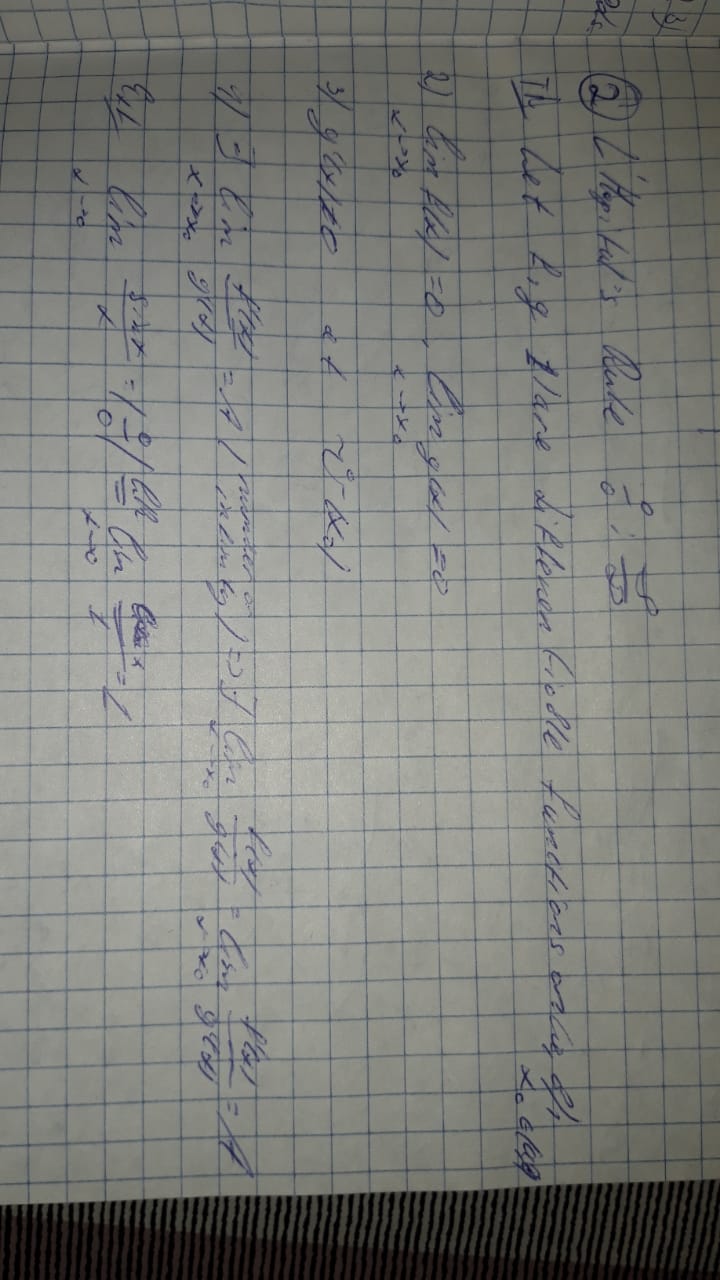 3)
② L'Hopital's Rule 0/0 ; ∞/∞
Th Let f, g 1) are differentiable functions on (a, b),
x₀ ∈ (a, b)
2) lim x→x₀ f(x) = 0, lim x→x₀ g(x) = 0
3) g'(x) ≠ 0 at (x₀)
4) ∃ lim x→x₀ f'(x)/g'(x) = A (number or infinity) => ∃ lim x→x₀ f(x)/g(x) = lim x→x₀ f'(x)/g'(x) = A
Ex1 lim x→0 sinx/x = (0/0) = lim x→0 cos x/1 = 1